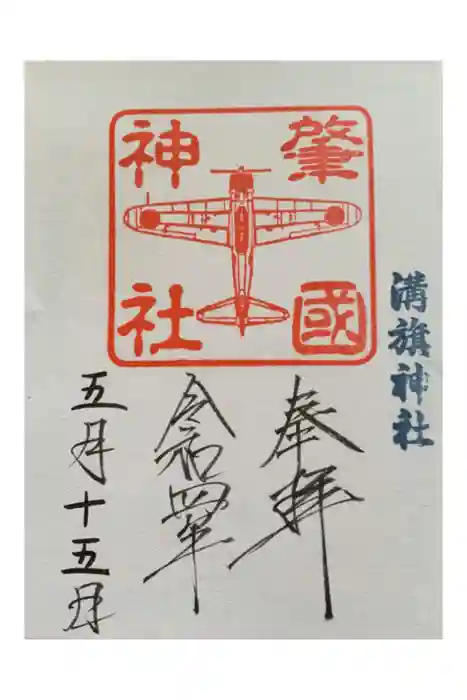 溝旗神社
肇國
神社
奉拝
令和四年
五月十五日